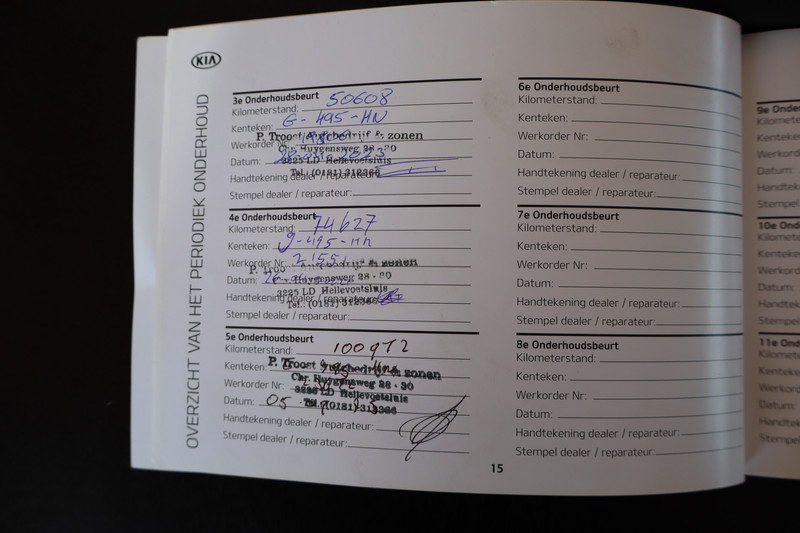 KIA
OVERZICHT VAN HET PERIODIEK ONDERHOUD
3e Onderhoudsbeurt
Kilometerstand: 50608
Kenteken: G-495-HN
P. Troost Autobedrijf & zonen
Werkorder Nr:
Chr. Huygensweg 28 - 30
Datum:
3225 LD Hellevoetsluis
Tel.: (0181) 312366
Handtekening dealer / reparateur:
Stempel dealer / reparateur:
4e Onderhoudsbeurt
Kilometerstand: 74627
Kenteken: g-495-HN
Werkorder Nr: 21551
P. Troost Autobedrijf & zonen
Datum: 26
Chr. Huygensweg 28 - 30
3225 LD Hellevoetsluis
Handtekening dealer / reparateur:
Tel.: (0181) 312366
Stempel dealer / reparateur:
5e Onderhoudsbeurt
Kilometerstand: 100972
P. Troost Autobedrijf & zonen
Kenteken:
Chr. Huygensweg 28 - 30
Werkorder Nr:
3225 LD Hellevoetsluis
Datum: 05
Tel.: (0181) 312366
Handtekening dealer / reparateur:
Stempel dealer / reparateur:
6e Onderhoudsbeurt
Kilometerstand:
Kenteken:
Werkorder Nr:
Datum:
Handtekening dealer / reparateur:
Stempel dealer / reparateur:
7e Onderhoudsbeurt
Kilometerstand:
Kenteken:
Werkorder Nr:
Datum:
Handtekening dealer / reparateur:
Stempel dealer / reparateur:
8e Onderhoudsbeurt
Kilometerstand:
Kenteken:
Werkorder Nr:
Datum:
Handtekening dealer / reparateur:
Stempel dealer / reparateur:
15
9e Ond
Kilometer
Kenteken
Werkord
Datum:
Handtek
Stempel
10e On
Kilomet
Kenteke
Werkor
Datum:
Handte
Stempe
11e Ond
Kilomet
Kenteke
Werkor
Datum
Handte
Stempe